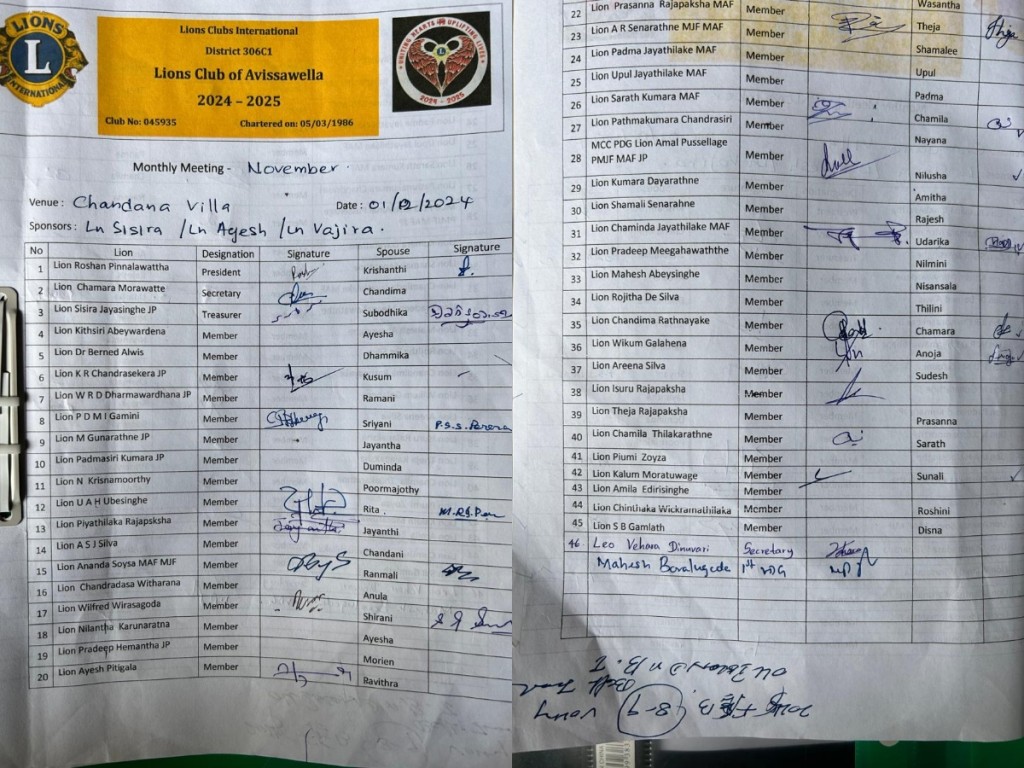 LIONS
L
INTERNATIONAL
Lions Clubs International
District 306C1
Lions Club of Avissawella
2024 – 2025
Club No: 045935 Chartered on: 05/03/1986
UNITING HEARTS UPLIFTING LIVES
2024 - 2025
Monthly Meeting - November.
Venue : Chandana Villa Date : 01/12/2024
Sponsors : Ln Sisira /Ln Ayesh /Ln Vajira.
No Lion Designation Signature Spouse Signature
1 Lion Roshan Pinnalawattha President Krishanthi
2 Lion Chamara Morawatte Secretary Chandima
3 Lion Sisira Jayasinghe JP Treasurer Subodhika
4 Lion Kithsiri Abeywardena Member Ayesha
5 Lion Dr Berned Alwis Member Dhammika
6 Lion K R Chandrasekera JP Member Kusum
7 Lion W R D Dharmawardhana JP Member Ramani
8 Lion P D M I Gamini Member Sriyani P.S.S. Perera
9 Lion M Gunarathne JP Member Jayantha
10 Lion Padmasiri Kumara JP Member Duminda
11 Lion N Krisnamoorthy Member Poormajothy
12 Lion U A H Ubesinghe Member Rita
13 Lion Piyathilaka Rajapsksha Member Jayanthi
14 Lion A S J Silva Member Chandani
15 Lion Ananda Soysa MAF MJF Member Ranmali
16 Lion Chandradasa Witharana Member Anula
17 Lion Wilfred Wirasagoda Member Shirani
18 Lion Nilantha Karunaratna Member Ayesha
19 Lion Pradeep Hemantha JP Member Morien
20 Lion Ayesh Pitigala Member Ravithra
22 Lion Prasanna Rajapaksha MAF Member Wasantha
23 Lion A R Senarathne MJF MAF Member Theja
24 Lion Padma Jayathilake MAF Member Shamalee
25 Lion Upul Jayathilake MAF Member Upul
26 Lion Sarath Kumara MAF Member Padma
27 Lion Pathmakumara Chandrasiri Member Chamila
28 MCC PDG Lion Amal Pussellage PMJF MAF JP Member Nayana
29 Lion Kumara Dayarathne Member Nilusha
30 Lion Shamali Senarahne Member Amitha
31 Lion Chaminda Jayathilake MAF Member Rajesh
32 Lion Pradeep Meegahawaththe Member Udarika
33 Lion Mahesh Abeysinghe Member Nilmini
34 Lion Rojitha De Silva Member Nisansala
35 Lion Chandima Rathnayake Member Thilini
36 Lion Wikum Galahena Member Chamara
37 Lion Areena Silva Member Anoja
38 Lion Isuru Rajapaksha Member Sudesh
39 Lion Theja Rajapaksha Member Prasanna
40 Lion Chamila Thilakarathne Member Sarath
41 Lion Piumi Zoyza Member
42 Lion Kalum Moratuwage Member Sunali
43 Lion Amila Edirisinghe Member
44 Lion Chinthaka Wickramathilaka Member Roshini
45 Lion S B Gamlath Member Disna
46 Leo Vehara Dinuvari Secretary
Mahesh Boralugoda 1st VDG